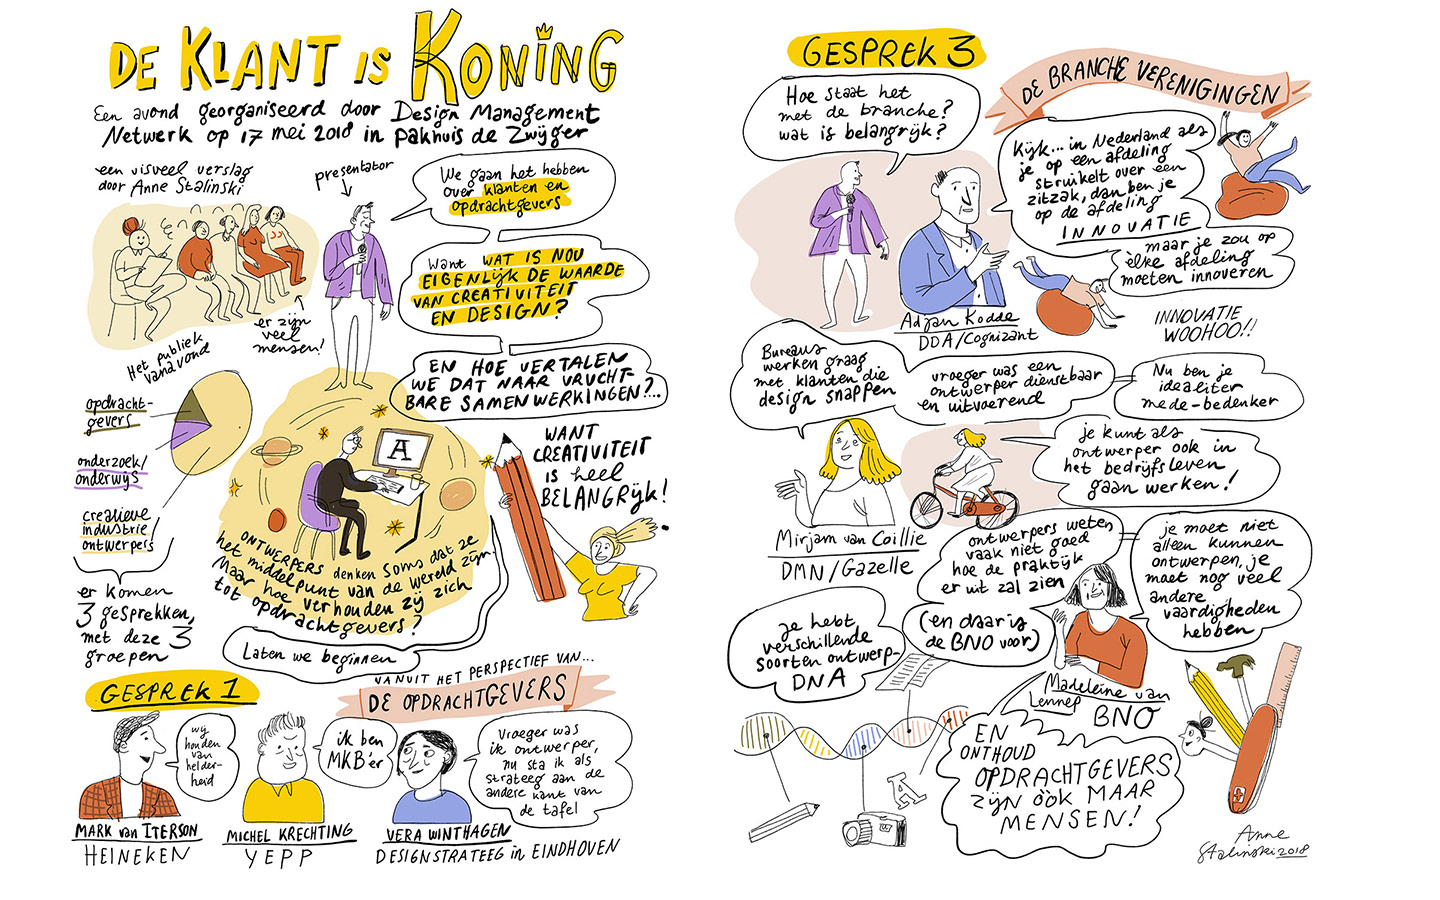 DE KLANT IS KONING
Een avond georganiseerd door Design Management
Netwerk op 17 mei 2018 in pakhuis de Zwijger
een visueel verslag
door Anne Stalinski
presentator
We gaan het hebben
over klanten en
opdrachtgevers
Want WAT IS NOU
EIGENLIJK DE WAARDE
VAN CREATIVITEIT
EN DESIGN?
er zijn
veel
mensen!
Het publiek
vanavond
EN HOE VERTALEN
WE DAT NAAR VRUCHT-
BARE SAMENWERKINGEN?...
opdracht-
gevers
onderzoek/
onderwijs
creatieve
industrie/
ontwerpers
A
WANT
CREATIVITEIT
IS heel
BELANGRIJK!
ONTWERPERS denken soms dat ze
het middelpunt van de wereld zijn.
Maar hoe verhouden zij zich
tot opdrachtgevers?
er komen
3 gesprekken,
met deze 3
groepen
Laten we beginnen
GESPREK 1
VANUIT HET PERSPECTIEF VAN...
DE OPDRACHTGEVERS
wij
houden
van
helder-
heid
ik ben
MKB'er
Vroeger was
ik ontwerper,
nu sta ik als
strateeg aan de
andere kant van
de tafel
MARK van ITERSON
HEINEKEN
MICHEL KRECHTING
YEPP
VERA WINTHAGEN
DESIGNSTRATEEG in EINDHOVEN
GESPREK 3
DE BRANCHE VERENIGINGEN
Hoe staat het
met de branche?
wat is belangrijk?
Kijk... in Nederland als
je op een afdeling
struikelt over een
zitzak, dan ben je
op de afdeling
INNOVATIE
maar je zou op
elke afdeling
moeten innoveren
Adjan Kodde
DDA/Cognizant
INNOVATIE
WOOHOO!!
Bureaus
werken graag
met klanten die
design snappen
vroeger was een
ontwerper dienstbaar
en uitvoerend
Nu ben je
idealiter
mede-bedenker
je kunt als
ontwerper ook in
het bedrijfsleven
gaan werken!
Mirjam van Coillie
DMN/Gazelle
ontwerpers weten
vaak niet goed
hoe de praktijk
er uit zal zien
(en daar is
de BNO voor)
je moet niet
alleen kunnen
ontwerpen, je
moet nog veel
andere
vaardigheden
hebben
Je hebt
verschillende
soorten ontwerp-
DNA
Madeleine van
Lennep
BNO
A
EN
ONTHOUD
OPDRACHTGEVERS
ZIJN ÓÓK MAAR
MENSEN!
Anne
Stalinski 2018